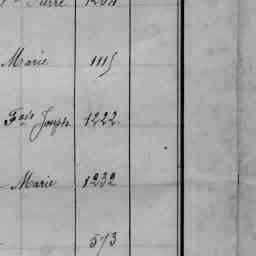 Pierre
Marie 1115
Fois Joseph 1222
Marie 1232
573